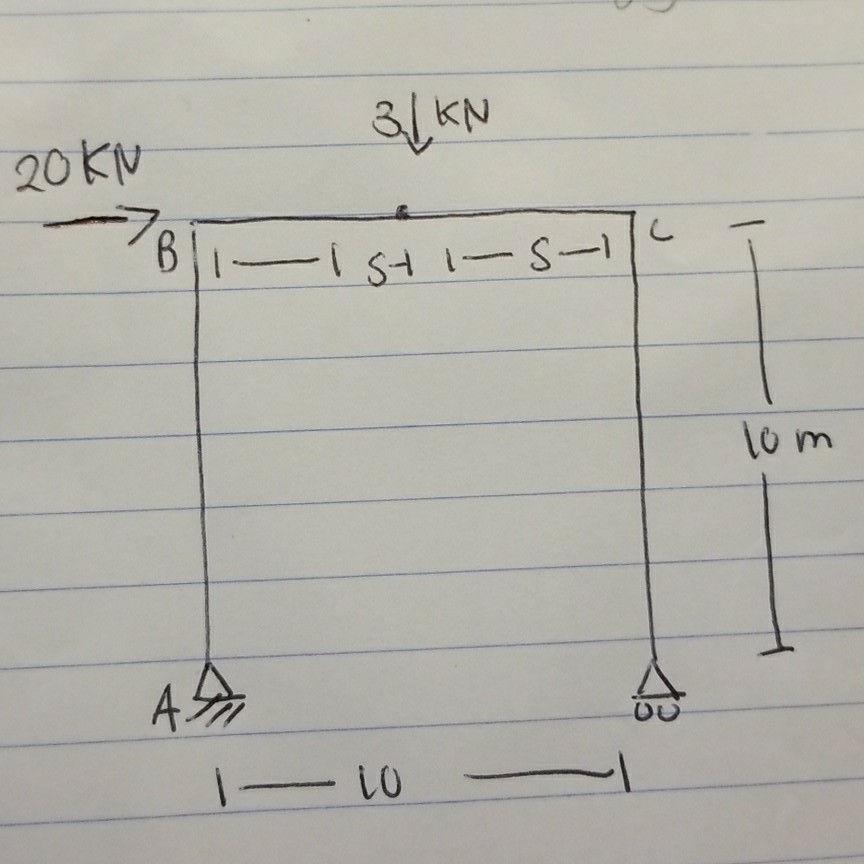 3 KN
20 KN
B
C
5 5
10 m
A
10